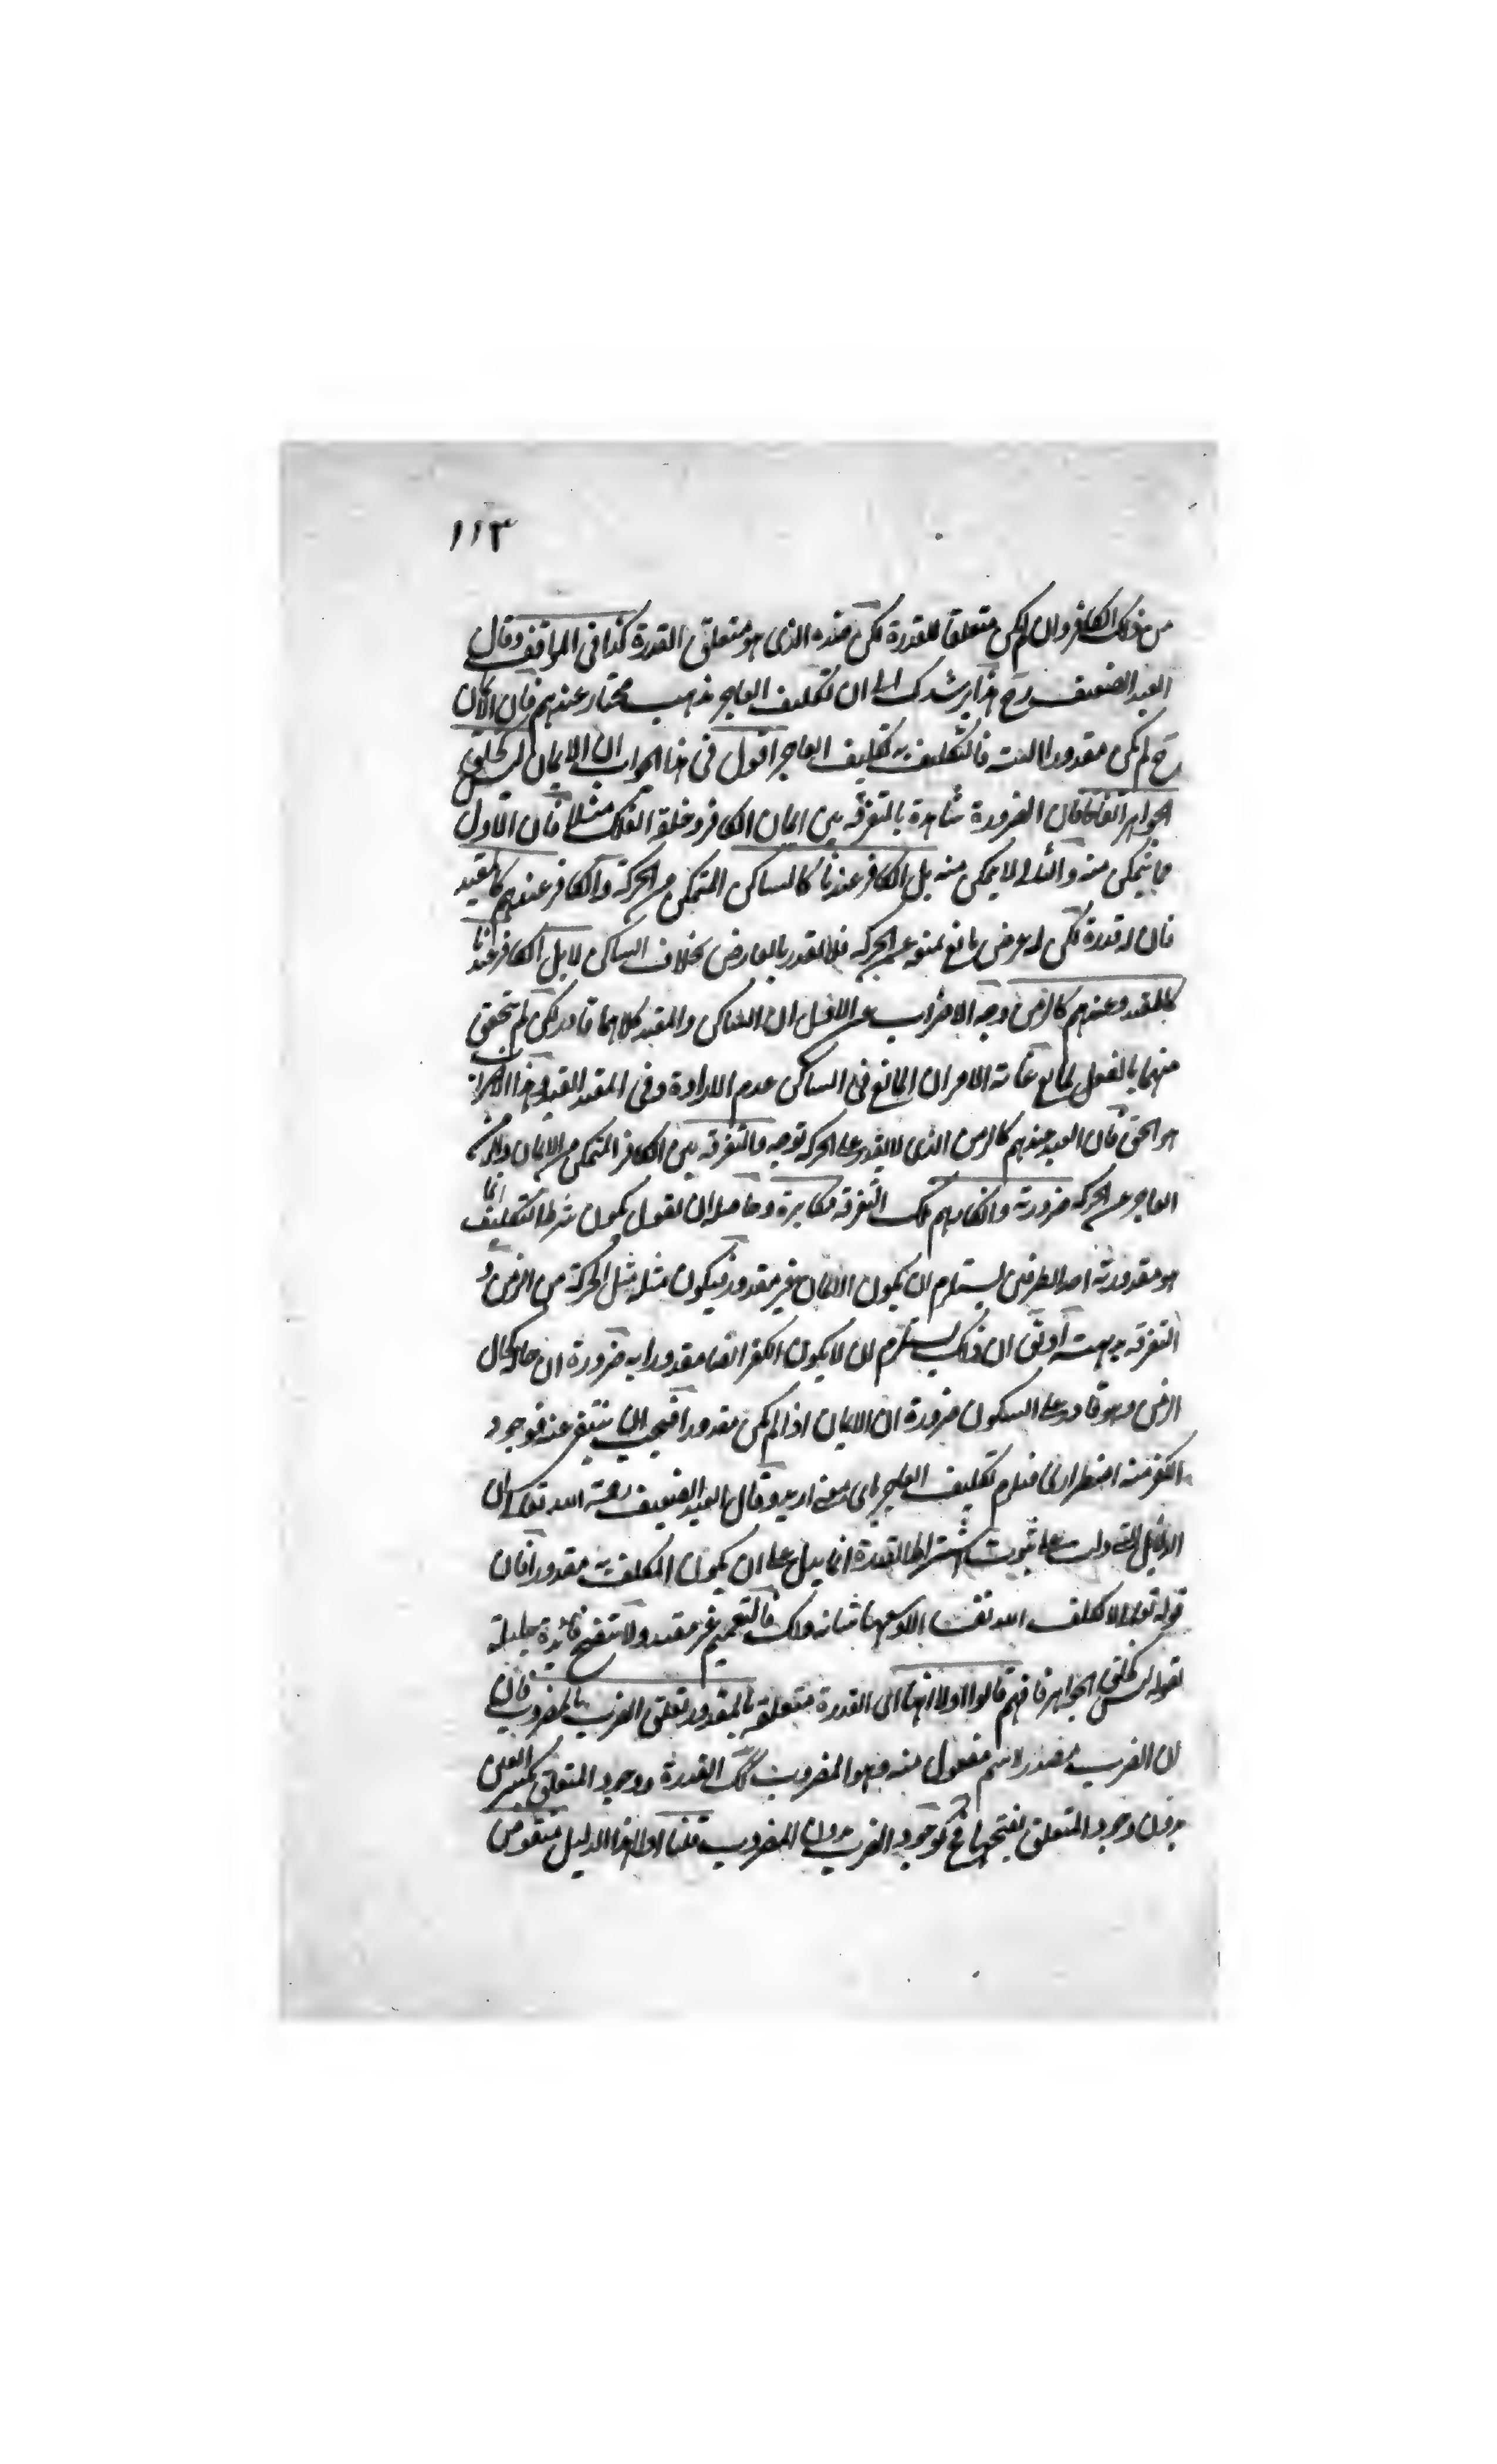 ١١٣
من ذلك الكافر وان لم يكن متعلقا للقدرة لكن ضده الذى هو متعلق القدرة كذا فى المواقف وقال
العبد الضعيف رح هذا يرشدك الى ان تكليف العاجز مذهب مختار عندهم فان الايمان
ح لم يكن مقدورا البتة فالتكليف به تكليف العاجز اقول فى هذا الجواب ان الايمان ليس كخلق
الجواهر اتفاقا فان الضرورة شاهدة بالتفرقة بين ايمان الكافر وخلق الفلك مثلا فان الاول
مما يتمكن منه والثانى لا يمكن منه بل الكافر عندنا كالساكن المتمكن من الحركة والكافر عندهم كالمقيد
فان له قدرة لكن له عرض مانع لمنعه عن الحركة فلا يقدر بالعارض بخلاف الساكن لا بل الكافر عندنا
كالمقيد وعندهم كالزمن وجه الاضراب عن الاول ان الساكن والمقيد كلاهما قادر لكن لم يتحقق
منهما بالفعل لمانع غاية الامر ان المانع فى الساكن عدم الارادة وفى المقيد القيد وهذا الاضراب
هو الحق فان العبد عندهم كالزمن الذى لا يقدر على الحركة توجه والتفرقة بين الكافر المتمكن من الايمان والزمن
العاجز عن الحركة ضرورية وانكارهم تلك التفرقة مكابرة وحاصله ان تقول يكون شرط التكليف انما
هو مقدورية احد الطرفين يستلزم ان يكون الايمان غير مقدور فيكون مثله مثل الحركة من الزمن و
التفرقة بديهية اونقول ان ذلك يستلزم ان لا يكون الكفر ايضا مقدورا به ضرورة ان حاله كحال
الزمن وهو قادر على السكون ضرورة ان الايمان اذا لم يكن مقدورا فيجب ان ينتفى عنه فوجود
الكفر منه اضطرارى فيلزم تكليف العاجز باى معنى اريد وقال العبد الضعيف رحمة الله تعالى ان
الدلائل التى دلت على ثبوت اشتراط القدرة انما يدل على ان يكون المكلف به مقدورا فان
قوله تعالى لا يكلف الله نفسا الا وسعها شانه ذلك فالتعميم غير مفيد ولا تتفتح فائدة جليلة
لقوله ليس كخلق الجواهر فافهم قالوا اولا انها اى القدرة متعلقة بالمقدور تعلق الضرب بالمضروب فان
ان الضرب مصدر واسم مفعول منه وهو المضروب كذلك القدرة ووجود المتعلق بكسر العين
بدون وجود المتعلق بفتحها مح كوجود الضرب بدون المضروب قلنا اولا هذا الدليل منقوض